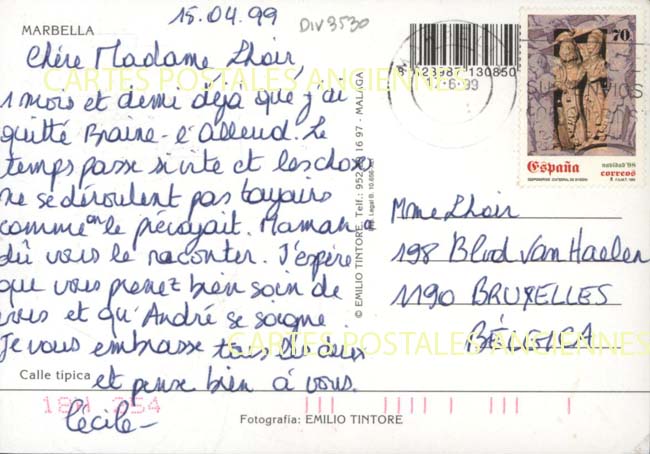 15.04.99
DIV3530
MARBELLA
Chère Madame Lhoir,
1 mois et demi déjà que j'ai
quitté Braine-l'alleud. Le
temps passe si vite et les choses
ne se déroulent pas toujours
comme on le prévoyait. Maman a
dû vous le raconter. J'espère
que vous prenez bien soin de
vous et qu'André se soigne
Je vous embrasse tous les deux
et pense bien à vous.
Cécile-
Calle típica
Fotografia: EMILIO TINTORE
© EMILIO TINTORE. Telf.: 952 16 97 - MALAGA
8 423987 130850
6-99
70
España
navidad'98
correos
Mme Lhoir
198 Blvd Van Haelen
1190 BRUXELLES
BÉLGICA
18H 254
CARTES POSTALES ANCIENNES
CARTES POSTALES ANCIENNES